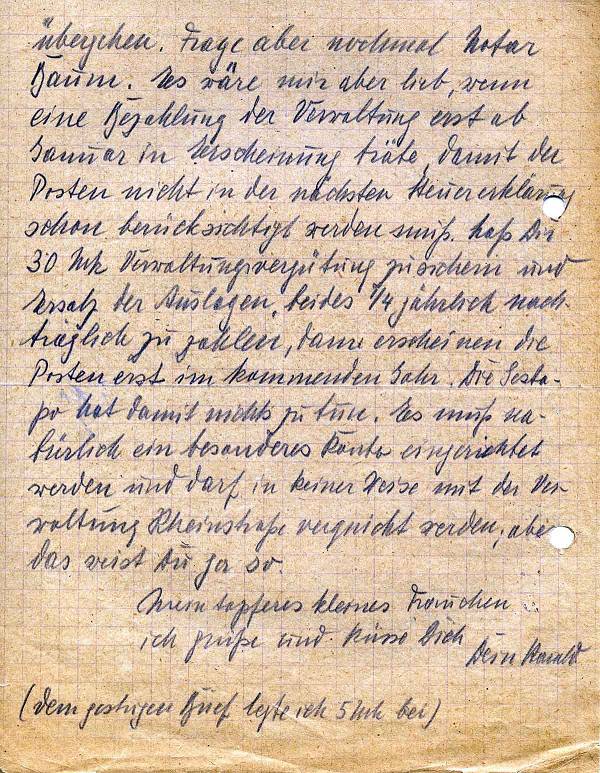 übergehen. Frage aber nochmal Notar
Baum. Es wäre mir aber lieb, wenn
eine Bezahlung der Verwaltung erst ab
Januar in Erscheinung träte, damit der
Posten nicht in der nächsten Steuererklärung
schon berücksichtigt werden muß. Laß Dir
30 Mk Verwaltungsvergütung zusichern und
Ersatz der Auslagen, beides 1/4 jährlich nach-
träglich zu zahlen, dann erscheinen die
Posten erst im kommenden Jahr. Die Gesta-
po hat damit nichts zu tun. Es muß na-
türlich ein besonderes Konto eingerichtet
werden und darf in keiner Weise mit der Ver-
waltung Rheinstraße verquickt werden, aber
das weist Du ja so.
Mein tapferes kleines Frauchen
ich grüße und küsse Dich
Dein
(dem gestrigen Brief legte ich 5 Mk bei)